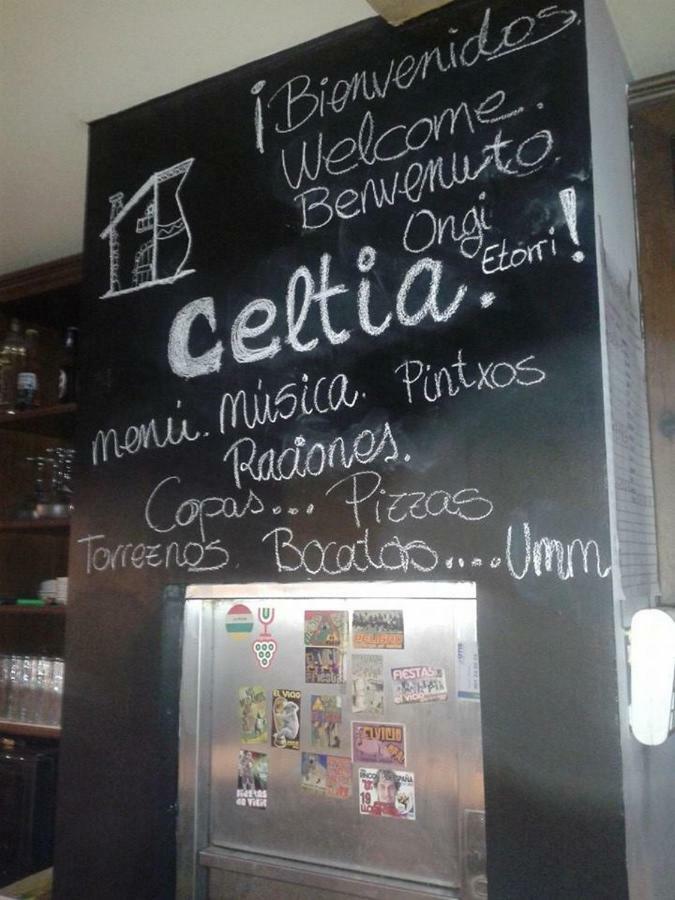 ¡Bienvenidos.
Welcome.
Benvenuto.
Ongi
Etorri!
Celtia.
menú. música. Pintxos
Raciones.
Copas... Pizzas
Torreznos. Bocatas....Umm
PELIGRO
Fiestas
FIESTAS
el vicio
EL VICIO
EL VICIO
19